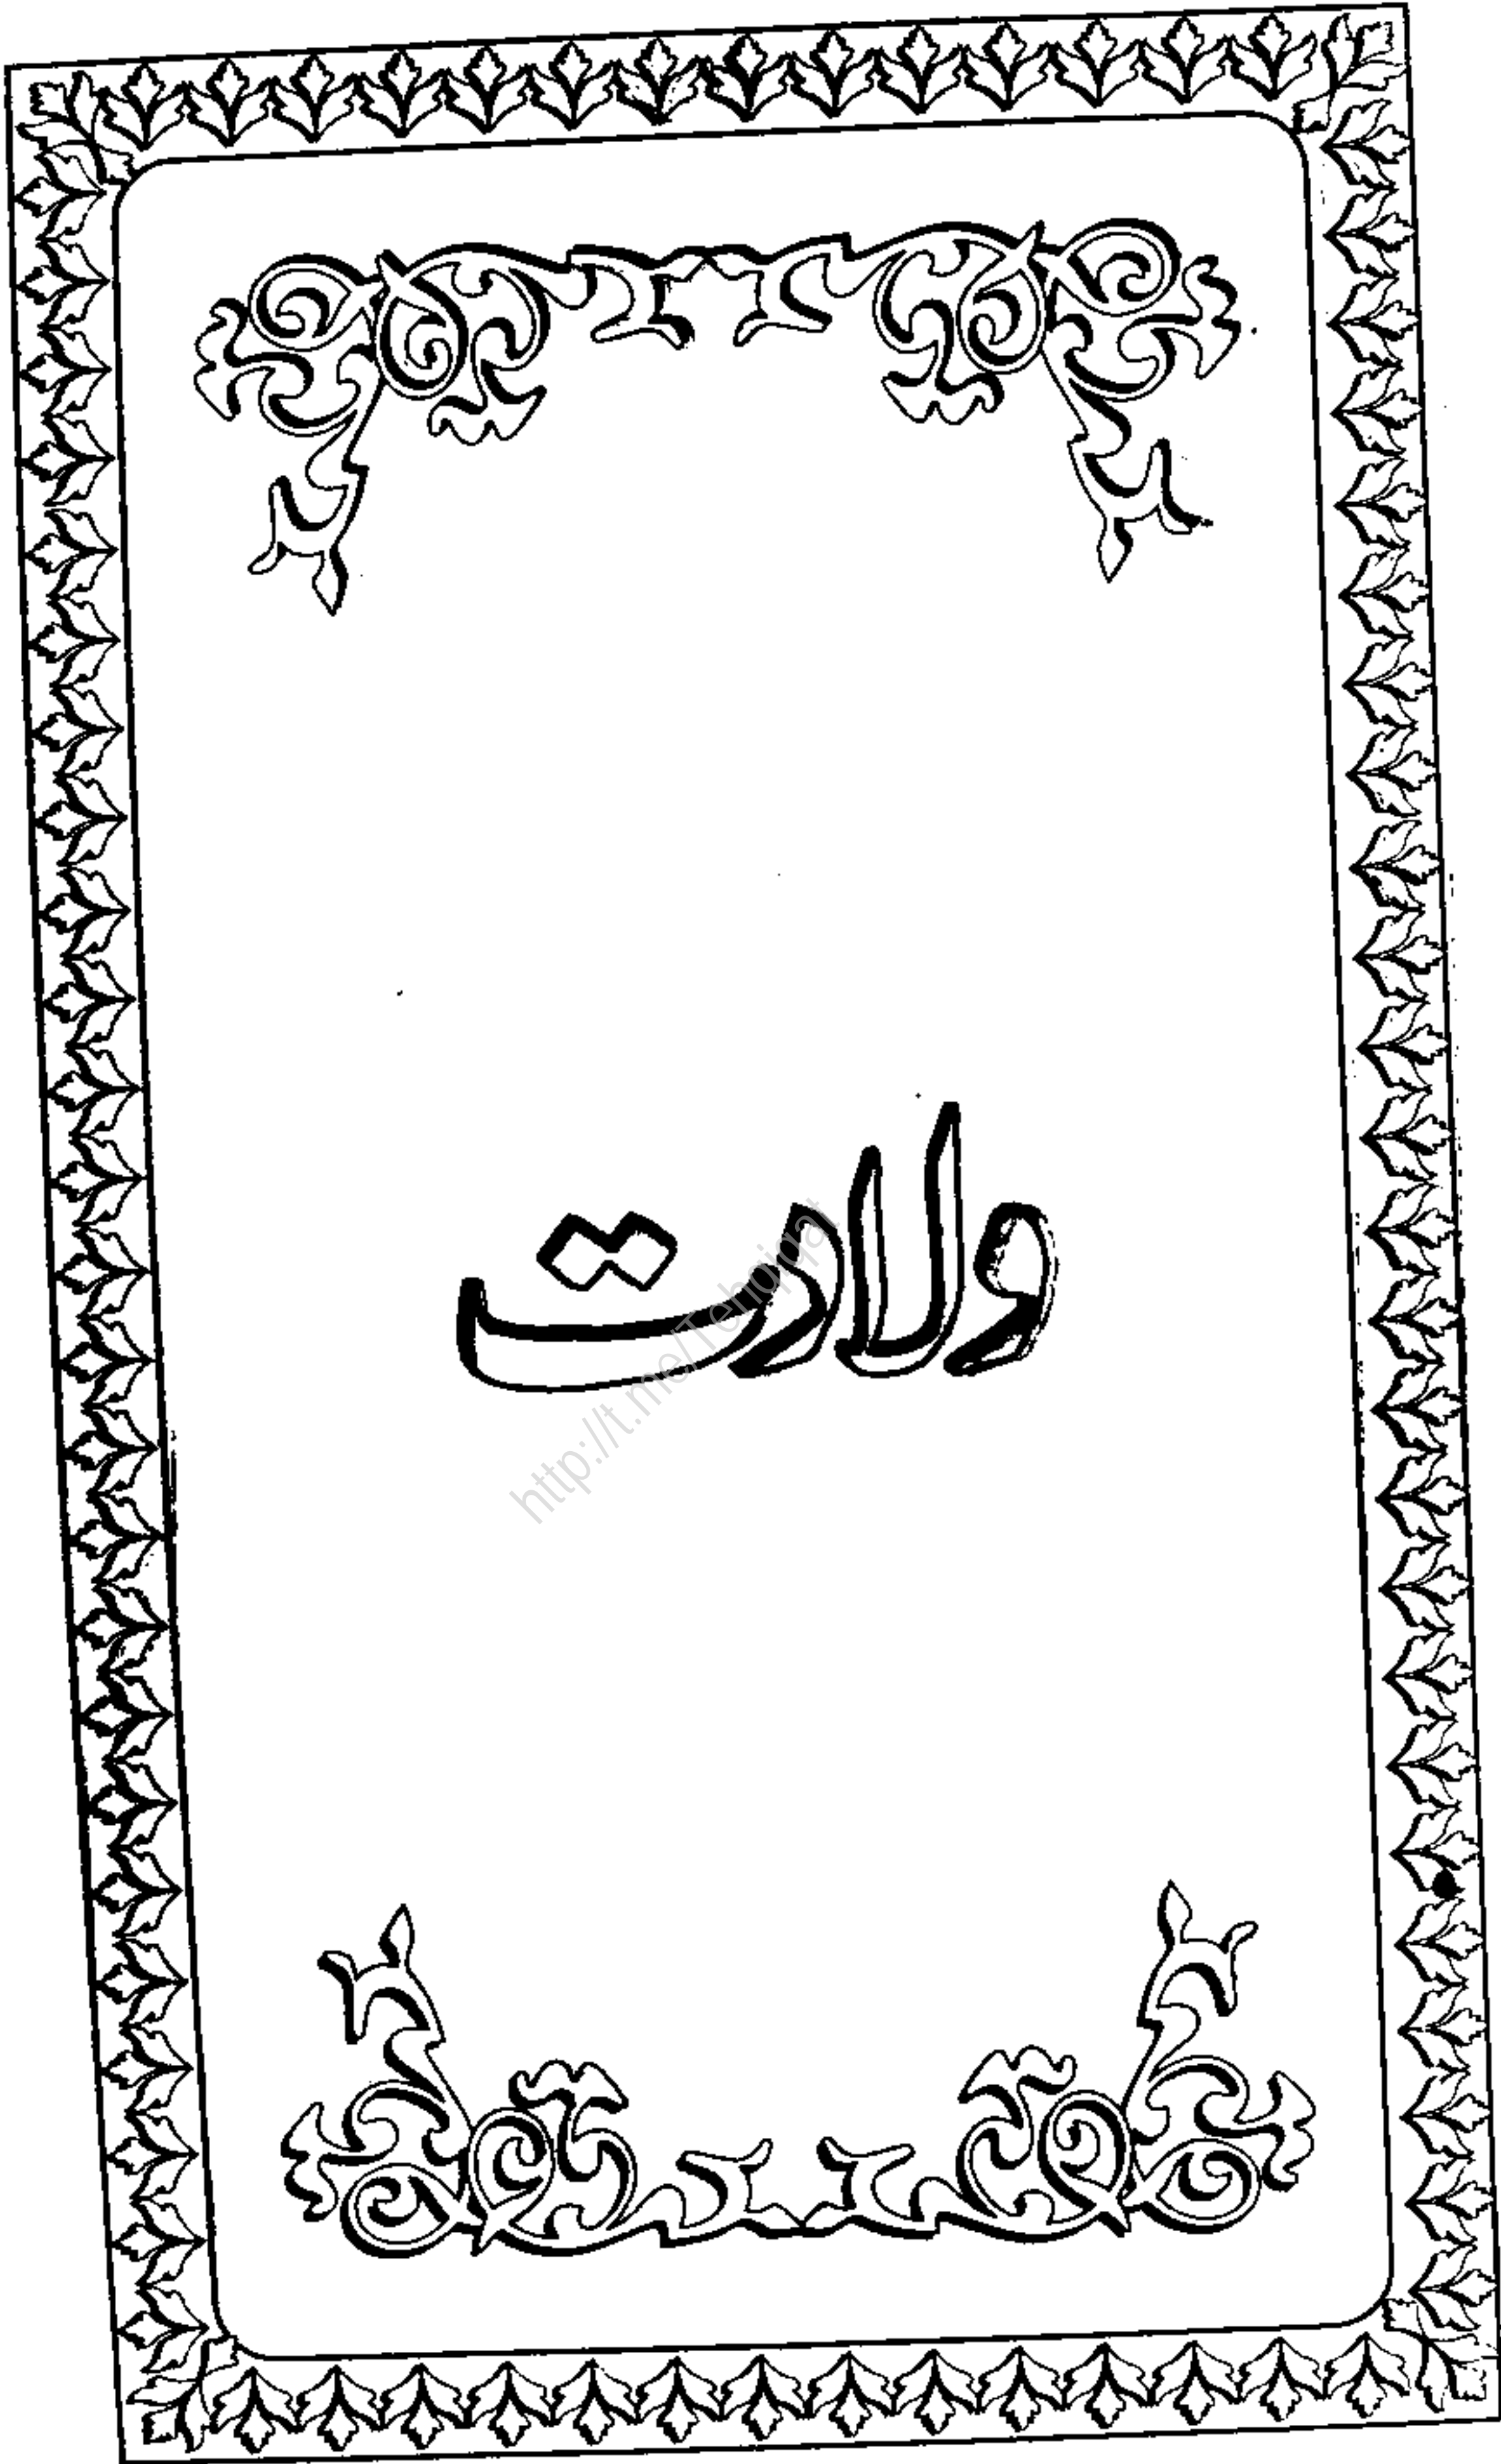 ولادت
http://t.me/Tehqiqat